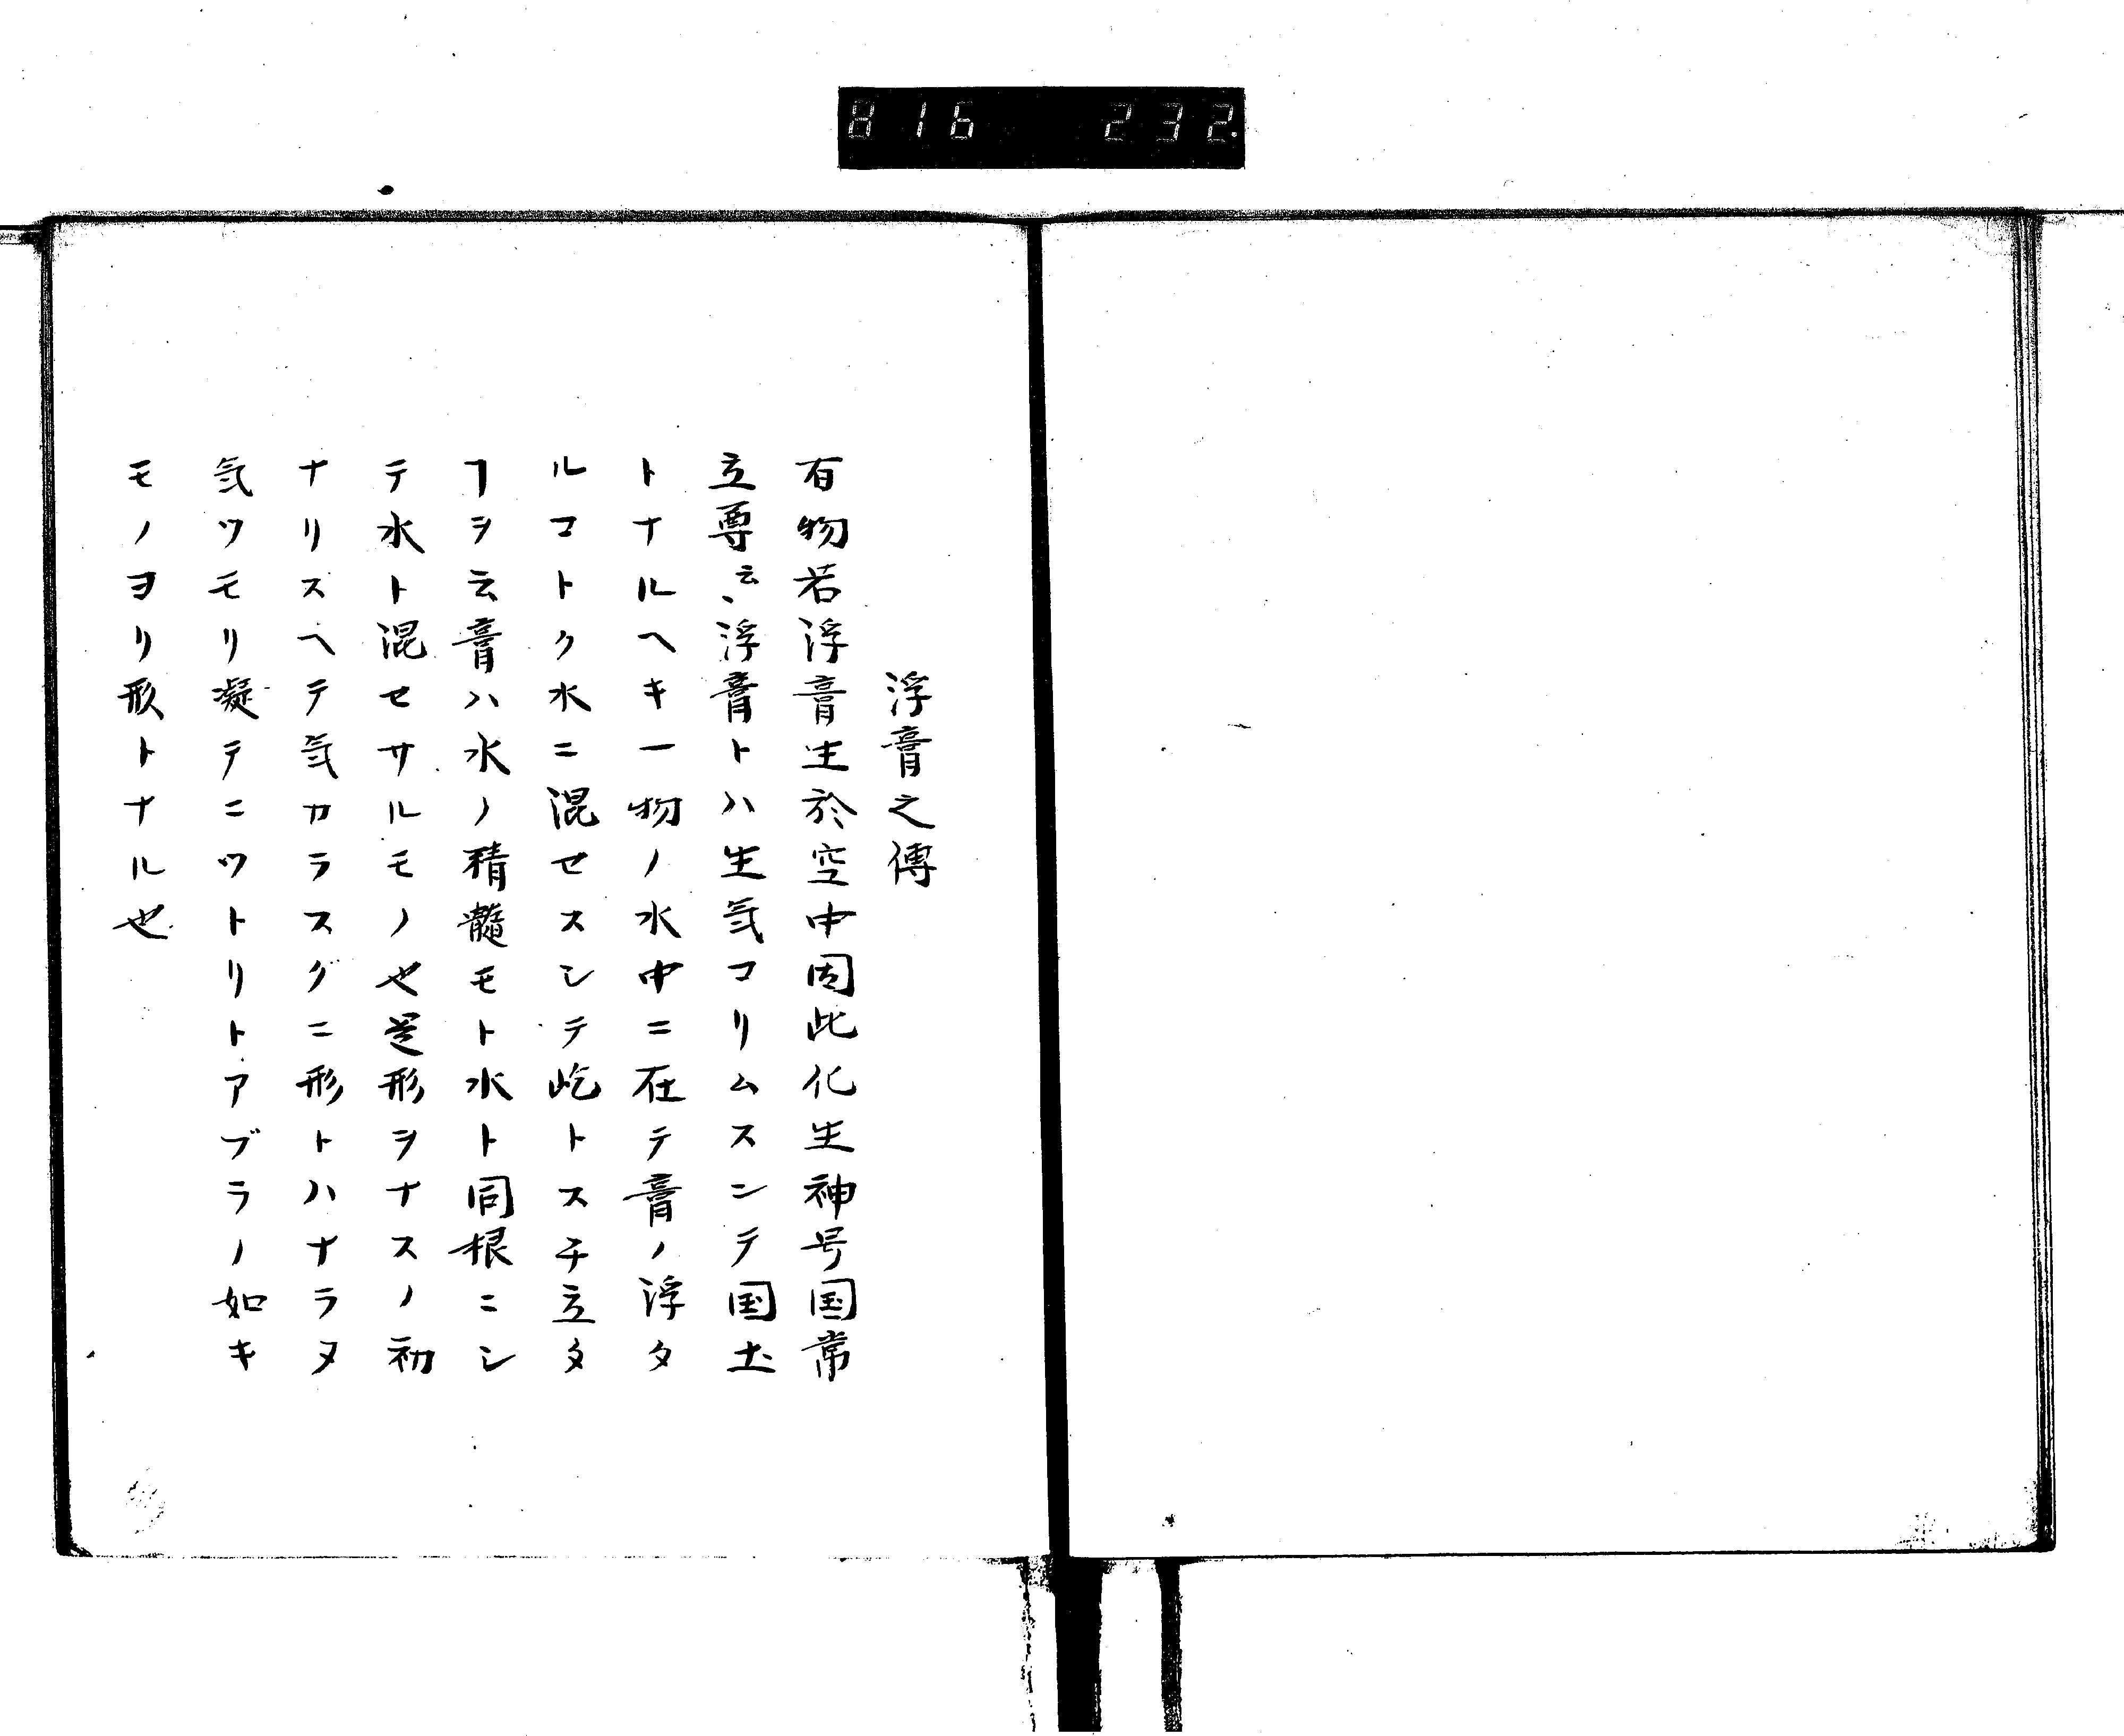 816 232.
浮膏之傳
有物若浮膏生於空中因此化生神号国常
立尊云〻浮膏トハ生気コリムスンテ国土
トナルヘキ一物ノ水中ニ在テ膏ノ浮タ
ルコトク水ニ混セスシテ屹トスチ立タ
ヿヲ云膏ハ水ノ精髓モト水ト同根ニシ
テ水ト混セサルモノ也是形ヲナスノ初
ナリスヘテ気カラスグニ形トハナラヌ
気ツモリ凝テニツトリトアブラノ如キ
モノヨリ形トナル也